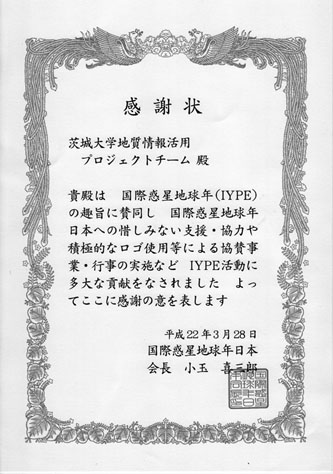 感謝状
茨城大学地質情報活用
プロジェクトチーム 殿
貴殿は 国際惑星地球年(IYPE)
の趣旨に賛同し 国際惑星地球年
日本への惜しみない支援・協力や
積極的なロゴ使用等による協賛事
業・行事の実施など IYPE活動に
多大な貢献をなされました よっ
てここに感謝の意を表します
平成22年3月28日
国際惑星地球年日本
会長 小玉 喜三郎